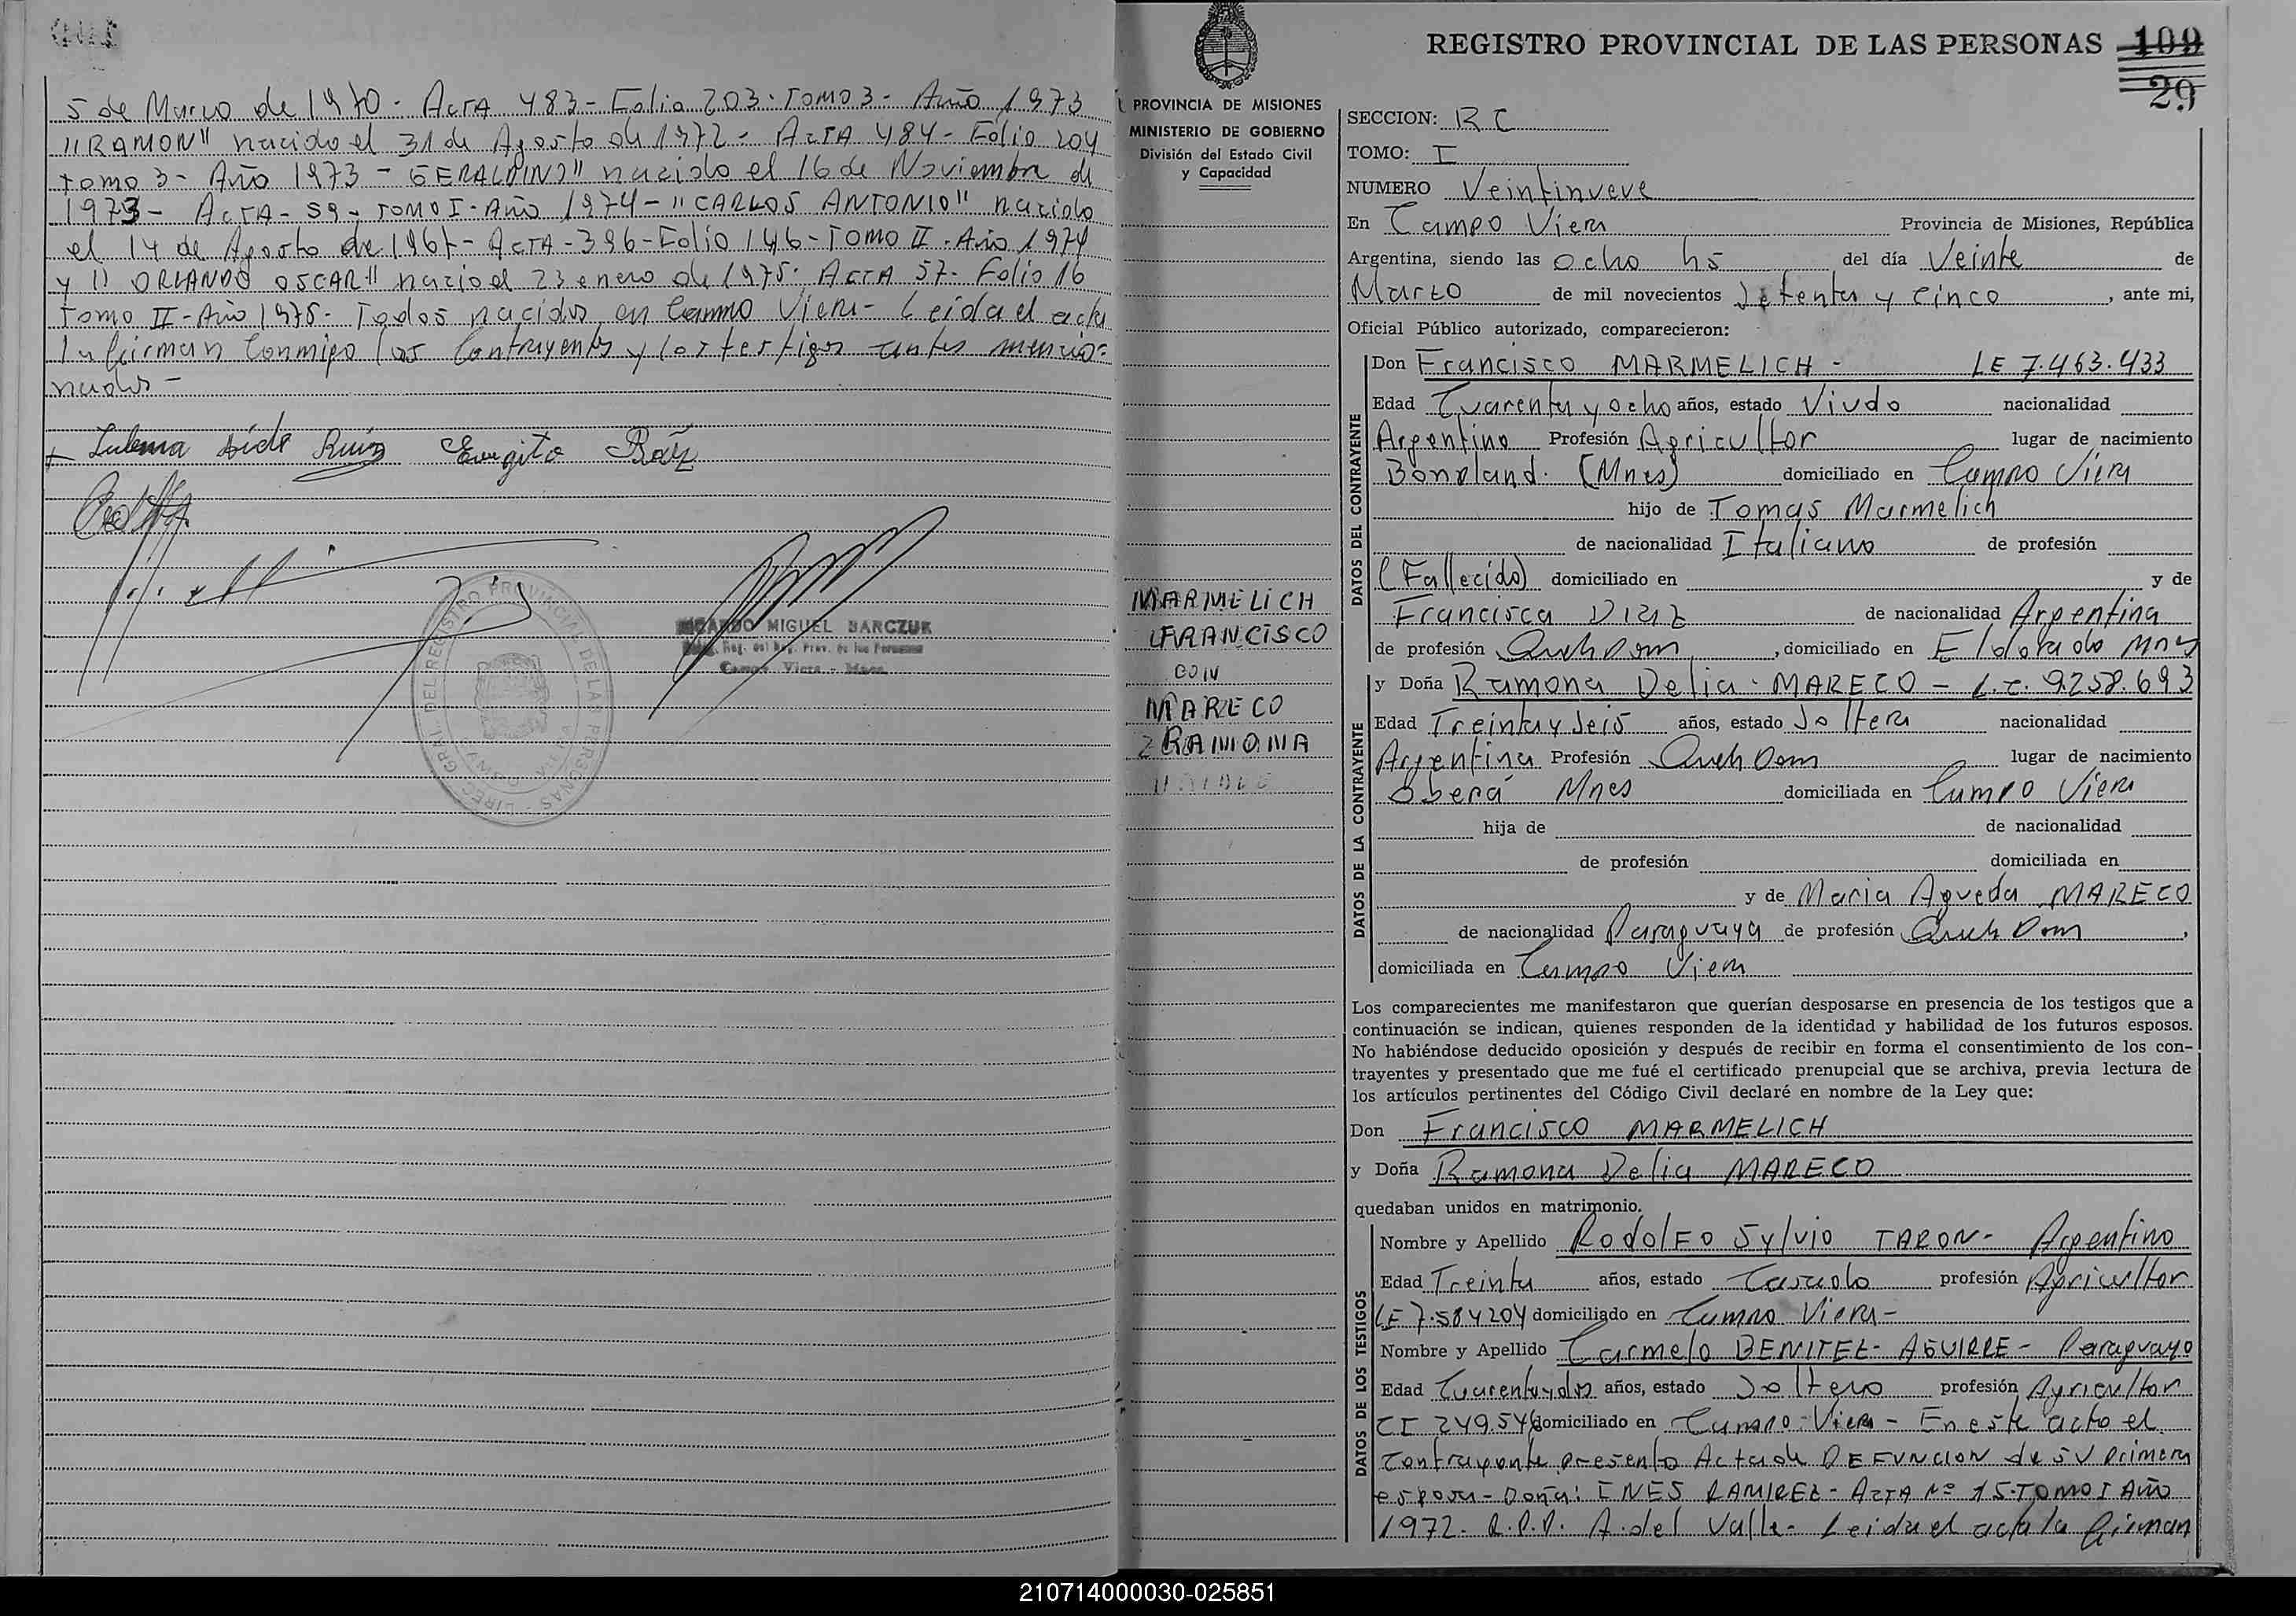 5 de Marzo de 1970 - ActA 483 - Folio 203 - Tomo 3 - Año 1973
"RAMON" nacido el 31 de Agosto de 1972 - ActA 484 - Folio 204
Tomo 3 - Año 1973 - GERALDINO" nacido el 16 de Noviembre de
1973 - ActA - 59 - TOMO I - Año 1974 - "CARLOS ANTONIO" nacido
el 14 de Agosto de 1967 - ActA - 396 - Folio 146 - Tomo II - Año 1974
y "ORLANDO OSCAR" nacio el 23 enero de 1975. ActA 57 - Folio 16
Tomo II - Año 1975 - Todos nacidos en Campo Viera - Leida el acta
la firman conmigo los contrayentes y los testigos antes mencio=
nados -
Zulema Aide Ruiz
RICARDO MIGUEL BARCZUK
Campo Viera - Mnes.
REGISTRO PROVINCIAL DE LAS PERSONAS
100
29
PROVINCIA DE MISIONES
MINISTERIO DE GOBIERNO
División del Estado Civil
y Capacidad
MARMELICH
FRANCISCO
CON
MARECO
RAMONA
SECCION: RC
TOMO: I
NUMERO Veintinueve
En Campo Viera Provincia de Misiones, República
Argentina, siendo las ocho hs del día Veinte de
Marzo de mil novecientos Setenta y cinco, ante mi,
Oficial Público autorizado, comparecieron:
DATOS DEL CONTRAYENTE
Don Francisco MARMELICH - LE 7.463.433
Edad Cuarenta y ocho años, estado Viudo nacionalidad
Argentino Profesión Agricultor lugar de nacimiento
Bonpland. (Mnes) domiciliado en Campo Viera
hijo de Tomas Marmelich
de nacionalidad Italiano de profesión
(Fallecido) domiciliado en y de
Francisca Diaz de nacionalidad Argentina
de profesión Queh Dom, domiciliado en Eldorado Mnes
DATOS DE LA CONTRAYENTE
y Doña Ramona Delia MARECO - L.C. 9.258.693
Edad Treinta y Seis años, estado Soltera nacionalidad
Argentina Profesión Queh Dom lugar de nacimiento
Oberá Mnes domiciliada en Campo Viera
hija de de nacionalidad
de profesión domiciliada en
y de Maria Agueda MARECO
de nacionalidad Paraguaya de profesión Queh Dom,
domiciliada en Campo Viera
Los comparecientes me manifestaron que querían desposarse en presencia de los testigos que a
continuación se indican, quienes responden de la identidad y habilidad de los futuros esposos.
No habiéndose deducido oposición y después de recibir en forma el consentimiento de los con-
trayentes y presentado que me fué el certificado prenupcial que se archiva, previa lectura de
los artículos pertinentes del Código Civil declaré en nombre de la Ley que:
Don Francisco MARMELICH
y Doña Ramona Delia MARECO
quedaban unidos en matrimonio.
DATOS DE LOS TESTIGOS
Nombre y Apellido Rodolfo Sylvio TARON - Argentino
Edad Treinta años, estado Casado profesión Agricultor
LE 7.584204 domiciliado en Campo Viera -
Nombre y Apellido Carmelo BENITEZ - AGUIRRE - Paraguayo
Edad Cuarenta y dos años, estado Soltero profesión Agricultor
CI 249.546 domiciliado en Campo Viera - En este acto el
Contrayente presento Acta de DEFUNCION de su primera
esposa - Doña: INES RAMIREZ - ActA Nº 15 - TOMO I Año
1972 - R.P.P. A. del Valle - Leida el acta la firman
210714000030-025851